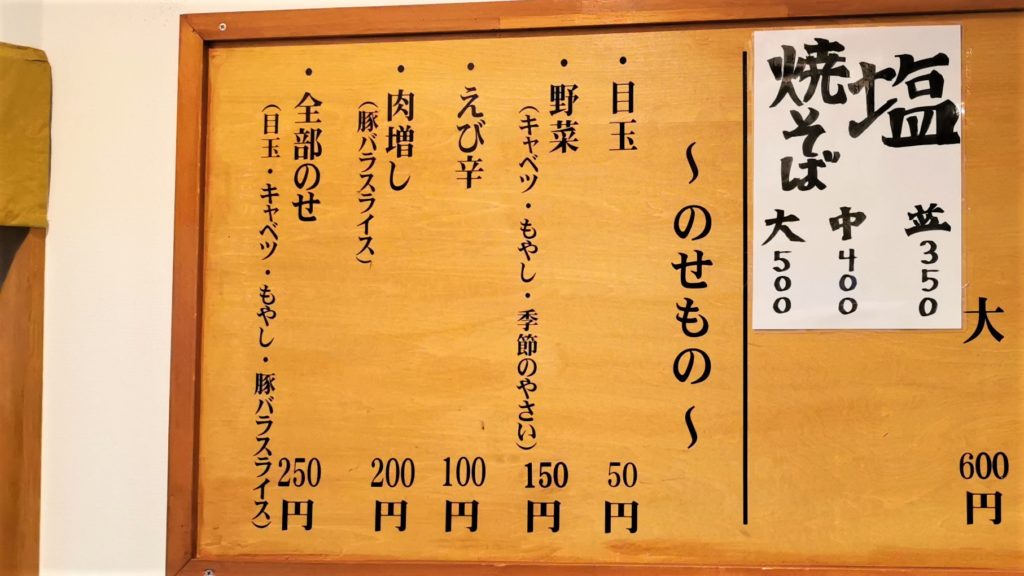 大 600円
塩
焼そば
並 350
中 400
大 500
～のせもの～
・目玉 50円
・野菜 150円
(キャベツ・もやし・季節のやさい)
・えび辛 100円
・肉増し 200円
(豚バラスライス)
・全部のせ 250円
(目玉・キャベツ・もやし・豚バラスライス)